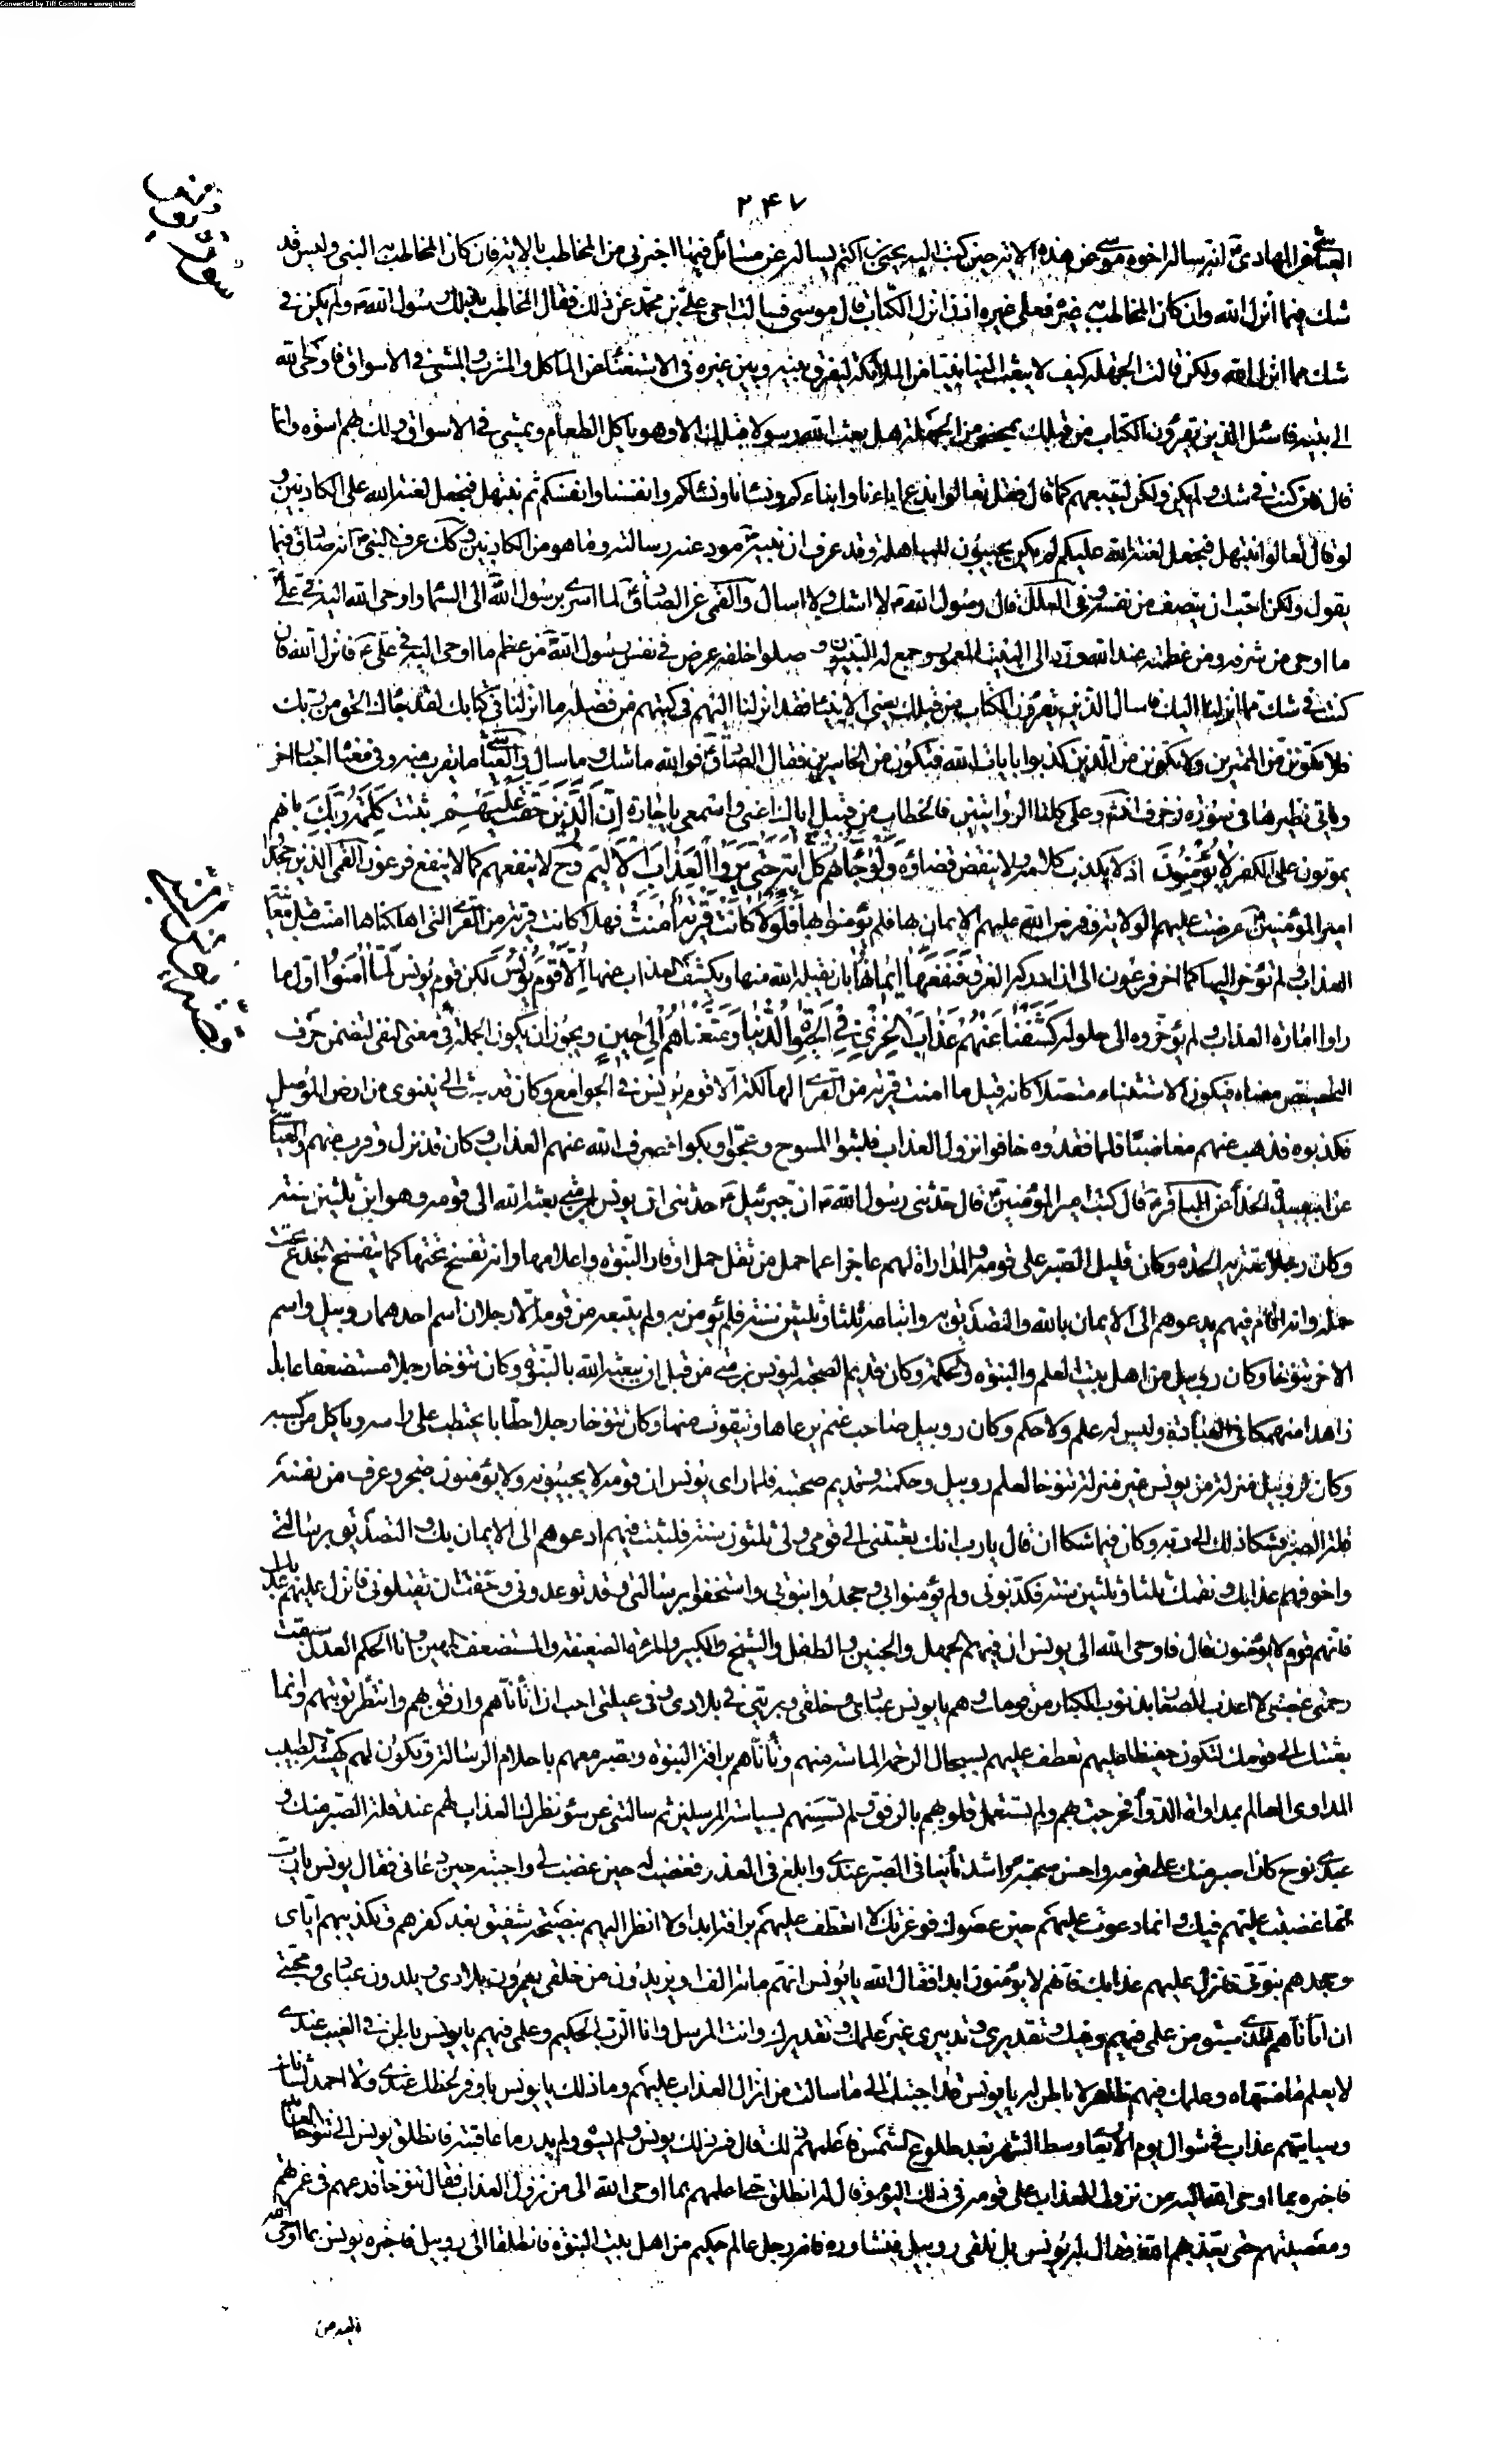 Converted by Tiff Combine - unregistered
۲۴۷
العياشي عن الهادي انه ساله اخوه موسى عن هذه الاية حين كتب اليه يحيى بن اكثم يساله عن مسائل فيها اخبرني من المخاطب بالاية فان كان المخاطب به النبي وليس قد
شك فيما انزل الله وان كان المخاطب به غيره فعلى غيره اذا انزل الكتاب قال موسى فسالت اخي علي بن محمد عن ذلك فقال المخاطب بذلك رسول الله ولم يكن في
شك مما انزل الله ولكن قالت الجهلة كيف لا يبعث الينا نبيا من الملائكة ليفرق بينه وبين غيره في الاستغناء عن الماكل والمشرب والمشي في الاسواق فاوحى الله
الى نبيه فاسئل الذين يقرؤن الكتاب من قبلك بمحضر من الجهلة هل بعث الله رسولا قبلك الا وهو ياكل الطعام ويمشي في الاسواق ولك بهم اسوة وانما
قال فان كنت في شك ولم يكن ولكن ليتبعهم كما قال فقل تعالوا ندع ابناءنا وابناءكم ونساءنا ونساءكم وانفسنا وانفسكم ثم نبتهل فنجعل لعنة الله على الكاذبين و
لو قال تعالوا نبتهل فنجعل لعنة الله عليكم لم يكن يجيبون للمباهلة وقد عرف ان نبيه مود عنه رسالته وما هو من الكاذبين وكك عرف النبي انه صادق فيما
يقول ولكن احب ان ينصف من نفسه وفي العلل قال رسول الله لا اشك ولا اسال والقمي عن الصادق لما اسري برسول الله الى السماء اوحى الله اليه في علي
ما اوحى من شرفه ومن عظمته عند الله ورد الى البيت المعمور وجمع له النبيون وصلوا خلفه عرض في نفس رسول الله من عظم ما اوحى اليه في علي فانزل الله فان
كنت في شك مما انزلنا اليك فاسال الذين يقرؤن الكتاب من قبلك يعني الانبياء فقد انزلنا اليهم في كتبهم من فضله ما انزلنا في كتابك لقد جاءك الحق من ربك
فلا تكونن من الممترين ولا تكونن من الذين كذبوا بايات الله فتكون من الخاسرين فقال الصادق فوالله ما شك وما سال والعياشي ما يقرب منه وفي معناه اخبار اخر
وياتي نظيرها في سورة زخرف انشاء وعلى كلتا الروايتين فالخطاب من قبيل اياك اعني واسمعي يا جارة ان الذين حقت عليهم ثبتت كلمة ربك بانهم
يموتون على الكفر لا يؤمنون اذ لا يكذب كلامه ولا ينقض قضاؤه ولو جاءتهم كل اية حتى يروا العذاب الاليم وح لا ينفعهم كما لا ينفع فرعون القمي الذين جحدوا
امير المؤمنين عرضت عليهم الولاية وفرض الله عليهم الايمان بها فلم يؤمنوا بها فلولا كانت قرية امنت فهلا كانت قرية من القرى التي اهلكناها امنت قبل معاينة
العذاب ولم تؤخر اليها كما اخر فرعون الى ان ادركه الغرق فنفعها ايمانها بان يقبله الله منها ويكشف العذاب عنها الا قوم يونس لكن قوم يونس لما امنوا اول ما
راوا امارة العذاب ولم يؤخروه الى حلوله كشفنا عنهم عذاب الخزي في الحيوة الدنيا ومتعناهم الى حين ويجوز ان يكون الجملة في معنى النفي لتضمن حرف
التحضيض معناه فيكون الاستثناء متصلا كانه قيل ما امنت قرية من القرى الهالكة الا قوم يونس في الجوامع وكان قد بعث الى نينوى من ارض الموصل
فكذبوه فذهب عنهم مغاضبا فلما فقدوه خافوا نزول العذاب فلبسوا المسوح وعجوا وبكوا فصرف الله عنهم العذاب وكان قد نزل وقرب منهم والعياشي
عن ابي عبيدة الحذاء عن الباقر قال كتب امير المؤمنين قال حدثني رسول الله ان جبرئيل حدثني ان يونس بن متى بعثه الله الى قومه وهو ابن ثلثين سنة
وكان رجلا تعتريه الحدة وكان قليل الصبر على قومه والمداراة لهم عاجزا عما حمل من ثقل حمل اوقار النبوة واعلامها وانه تفسخ تحتها كما يتفسخ الجذع تحت
حمله وانه اقام فيهم يدعوهم الى الايمان بالله والتصديق به واتباعه ثلثا وثلثين سنة فلم يؤمن به ولم يتبعه من قومه الا رجلان اسم احدهما روبيل واسم
الاخر تنوخا وكان روبيل من اهل بيت العلم والنبوة والحكمة وكان قديم الصحبة ليونس بن متى من قبل ان يبعثه الله بالنبوة وكان تنوخا رجلا مستضعفا عابدا
زاهدا منهمكا في العبادة وليس له علم ولا حكم وكان روبيل صاحب غنم يرعاها ويتقوت منها وكان تنوخا رجلا حطابا يحتطب على راسه وياكل من كسبه
وكان لروبيل منزلة من يونس غير منزلة تنوخا لعلم روبيل وحكمته وقديم صحبته فلما راى يونس ان قومه لا يجيبونه ولا يؤمنون ضجر وعرف من نفسه
قلة الصبر فشكا ذلك الى ربه وكان فيما شكا ان قال يا رب انك بعثتني الى قومي ولي ثلثون سنة فلبثت فيهم ادعوهم الى الايمان بك والتصديق برسالتي
واخوفهم عذابك ونقمتك ثلثا وثلثين سنة فكذبوني ولم يؤمنوا بي وجحدوا نبوتي واستخفوا برسالتي وقد توعدوني وخفت ان يقتلوني فانزل عليهم عذابك
فانهم قوم لا يؤمنون قال فاوحى الله الى يونس ان فيهم الحمل والجنين والطفل والشيخ والكبير والمرءة الضعيفة والمستضعف المهين وانا الحكم العدل سبقت
رحمتي غضبي لا اعذب الصغار بذنوب الكبار من قومك وهم يا يونس عبادي وخلقي وبريتي في بلادي وفي عيلتي احب ان اتاناهم وارفق بهم وانتظر توبتهم وانما
بعثتك الى قومك لتكون حفيظا عليهم تعطف عليهم بسجال الرحمة الماسة منهم وتأناهم برافة النبوة وتصبر معهم باحلام الرسالة وتكون لهم كهيئة الطبيب
المداوي العالم بمداواة الدواء فخرجت بهم ولم تستعمل قلوبهم بالرفق ولم تسسهم بسياسة المرسلين ثم سالتني عن سوء نظرك العذاب لهم عند قلة الصبر منك و
عبدي نوح كان اصبر منك على قومه واحسن صحبة واشد تأنيا في الصبر عندي وابلغ في العذر فغضبت له حين غضب لي واجبته حين دعاني فقال يونس يا رب
انما غضبت عليهم فيك وانما دعوت عليهم حين عصوك فوعزتك لا اتعطف عليهم برافة ابدا ولا انظر اليهم بنصيحة شفيق بعد كفرهم وتكذيبهم اياي
وجحدهم نبوتي فانزل عليهم عذابك فانهم لا يؤمنون ابدا فقال الله يا يونس انهم مائة الف او يزيدون من خلقي يعمرون بلادي ويلدون عبادي ومحبتي
ان اتأناهم للذي سبق من علمي فيهم وفيك وتقديري وتدبيري غير علمك وتقديرك وانت المرسل وانا الرب الحكيم وعلمي فيهم يا يونس باطن في الغيب عندي
لا يعلم ما منتهاه وعلمك فيهم ظاهر لا باطن له يا يونس قد اجبتك الى ما سالت من انزال العذاب عليهم وما ذلك يا يونس باوفر لحظك عندي ولا احمد لشانك
وسياتيهم عذاب في شوال يوم الاربعاء وسط الشهر بعد طلوع الشمس فاعلمهم ذلك قال فسر ذلك يونس ولم يسوءه ولم يدر ما عاقبته فانطلق يونس الى تنوخا العابد
فاخبره بما اوحى الله اليه من نزول العذاب على قومه في ذلك اليوم وقال له انطلق حتى اعلمهم بما اوحى الله الي من نزول العذاب فقال تنوخا فدعهم في غمرتهم
ومعصيتهم حتى يعذبهم الله فقال له يونس بل نلقى روبيل فنشاوره فانه رجل عالم حكيم من اهل بيت النبوة فانطلقا الى روبيل فاخبره يونس بما اوحى الله
اليه من